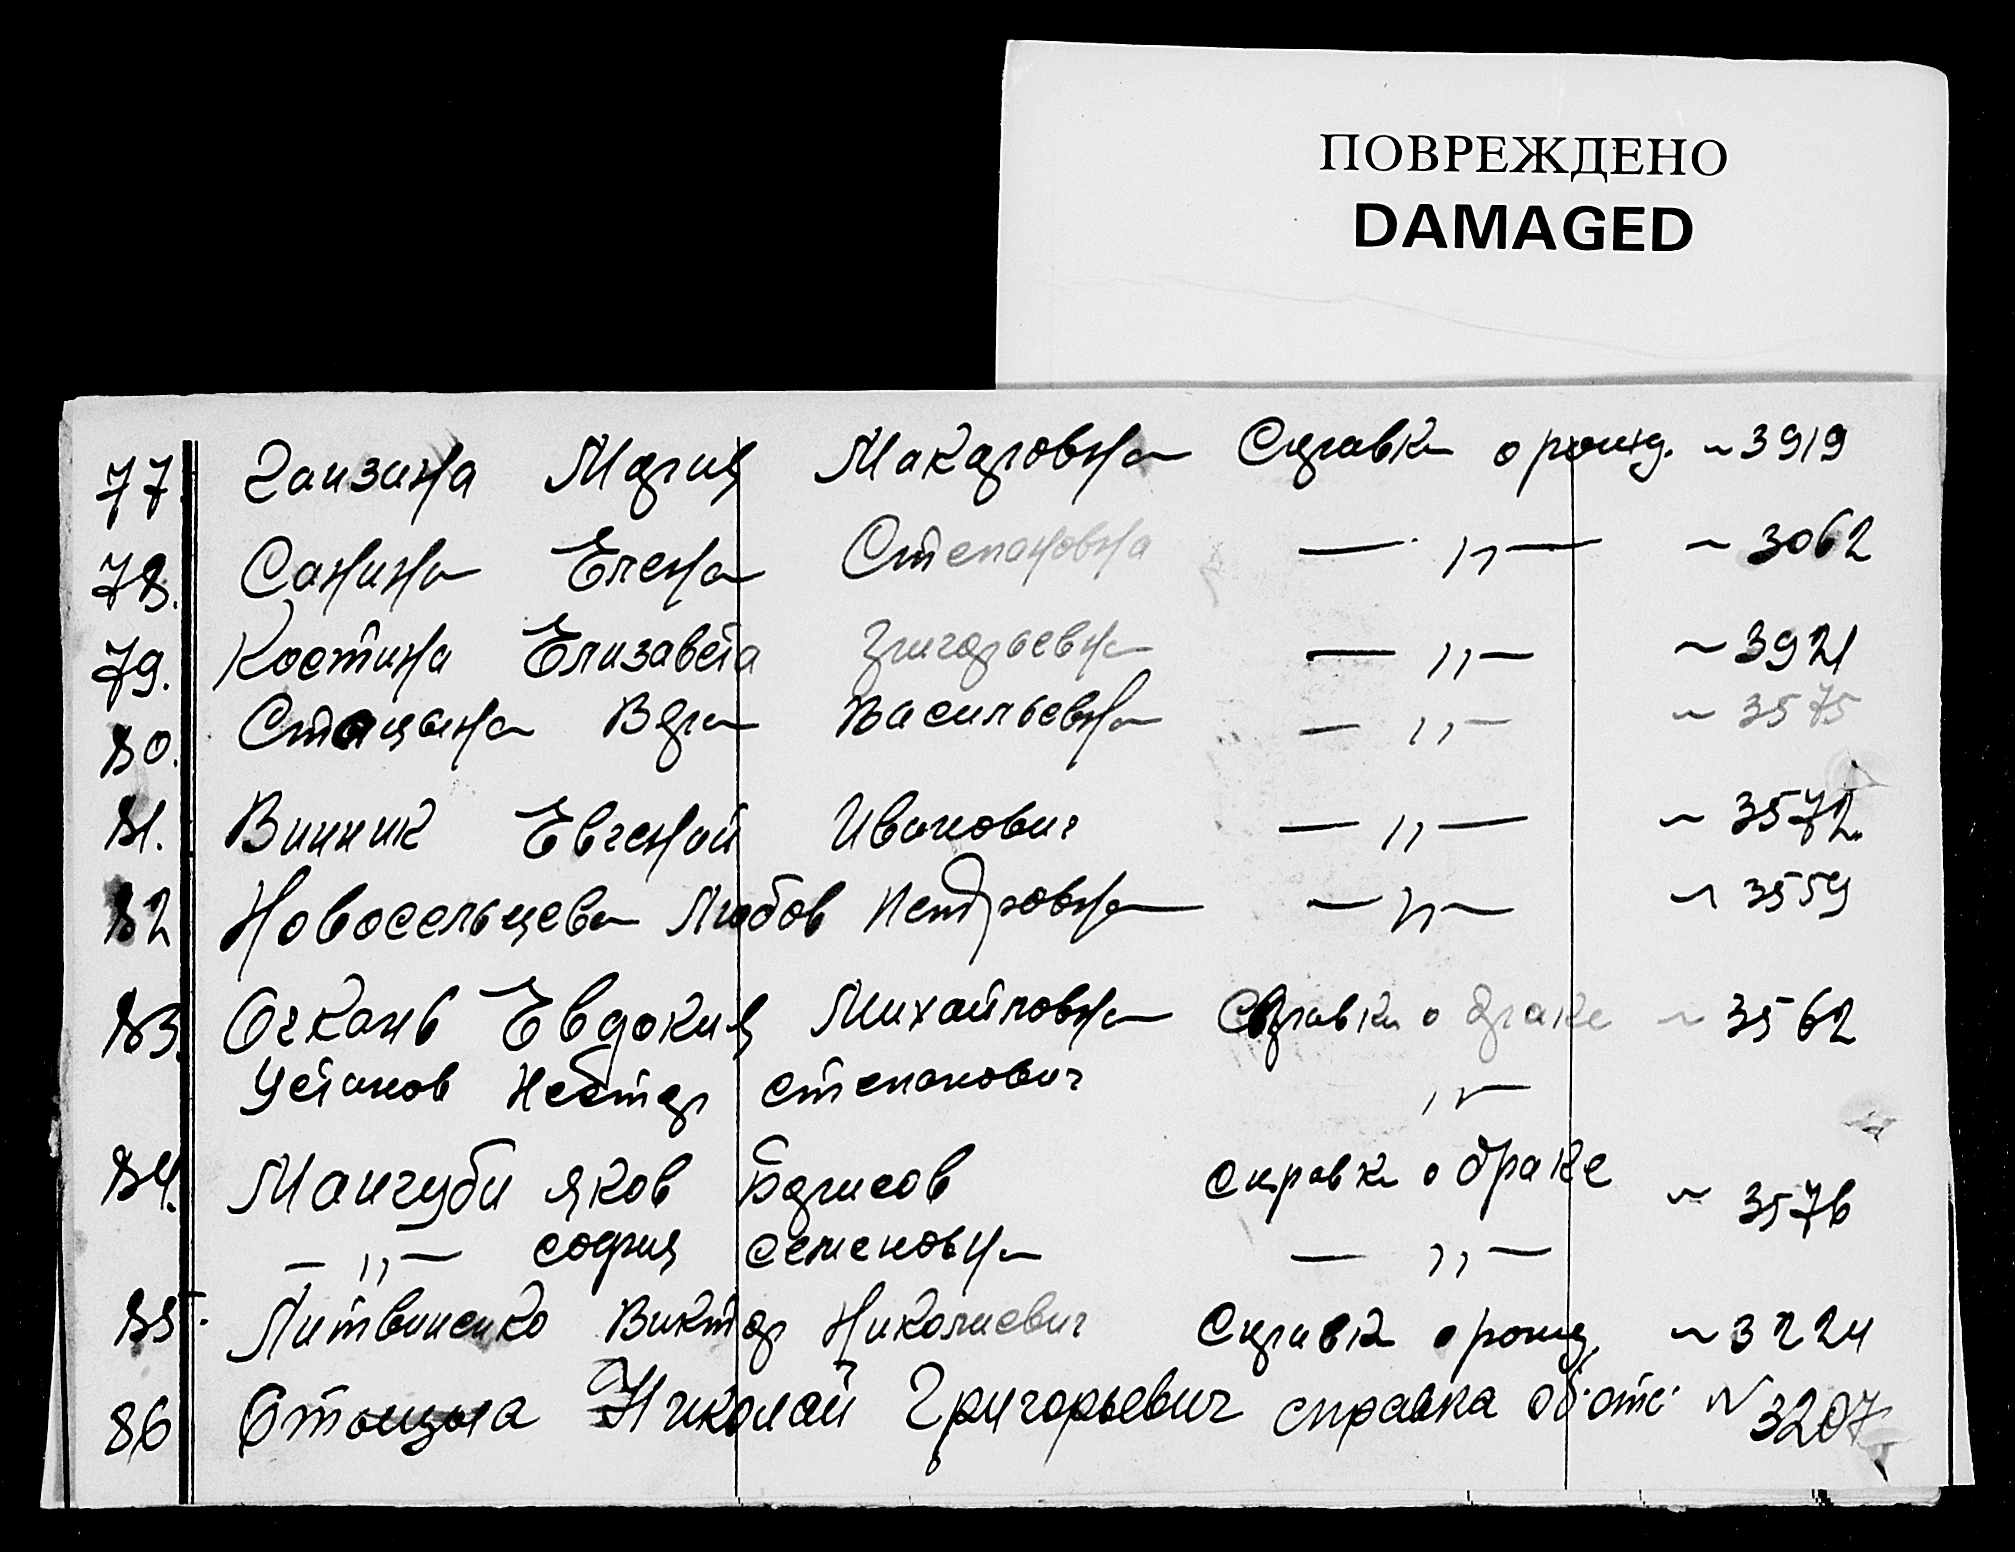 ПОВРЕЖДЕНО
DAMAGED
77. Мария Макаровна Справка о рожд. ~ 3919
78. Санина Елена Степановна — ,, — ~ 3062
79. Костина Елизавета Григорьевна — ,, — ~ 3921
80. Васильевна — ,, — ~ 3575
81. Винник Евгений Иванович — ,, — ~ 3572.
82 Новосельцева Любов Петровна — ,, — ~ 3559
83. Евдокия Михайловна Справка о браке ~ 3562
Устинов Нестор степанович ,, —
84. Мангуби яков Борисов справка о браке ~ 3576
— ,, — софия семеновна — ,, —
85. Литвиненко Виктор Николаевич Справка о рожд. ~ 3224
86 Николай Григорьевич справка об отс. N 3207